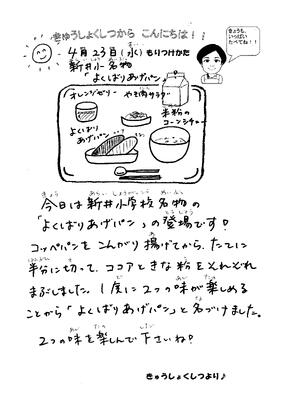 きゅうしょくしつから こんにちは！！
きょうも、
いっぱい
たべてね！！
4月23日(水)もりつけかた
新井小名物
「よくばりあげパン」
オレンジゼリー やき肉サラダ
よくばり
あげパン
米粉の
コーンシチュー
今日は新井小学校名物の
「よくばりあげパン」の登場です！
コッペパンをこんがり揚げてから、たてに
半分に切って、ココアときな粉をそれぞれ
まぶしました。1度に2つの味が楽しめる
ことから「よくばりあげパン」と名づけました。
2つの味を楽しんで下さいね！
きゅうしょくしつより♪